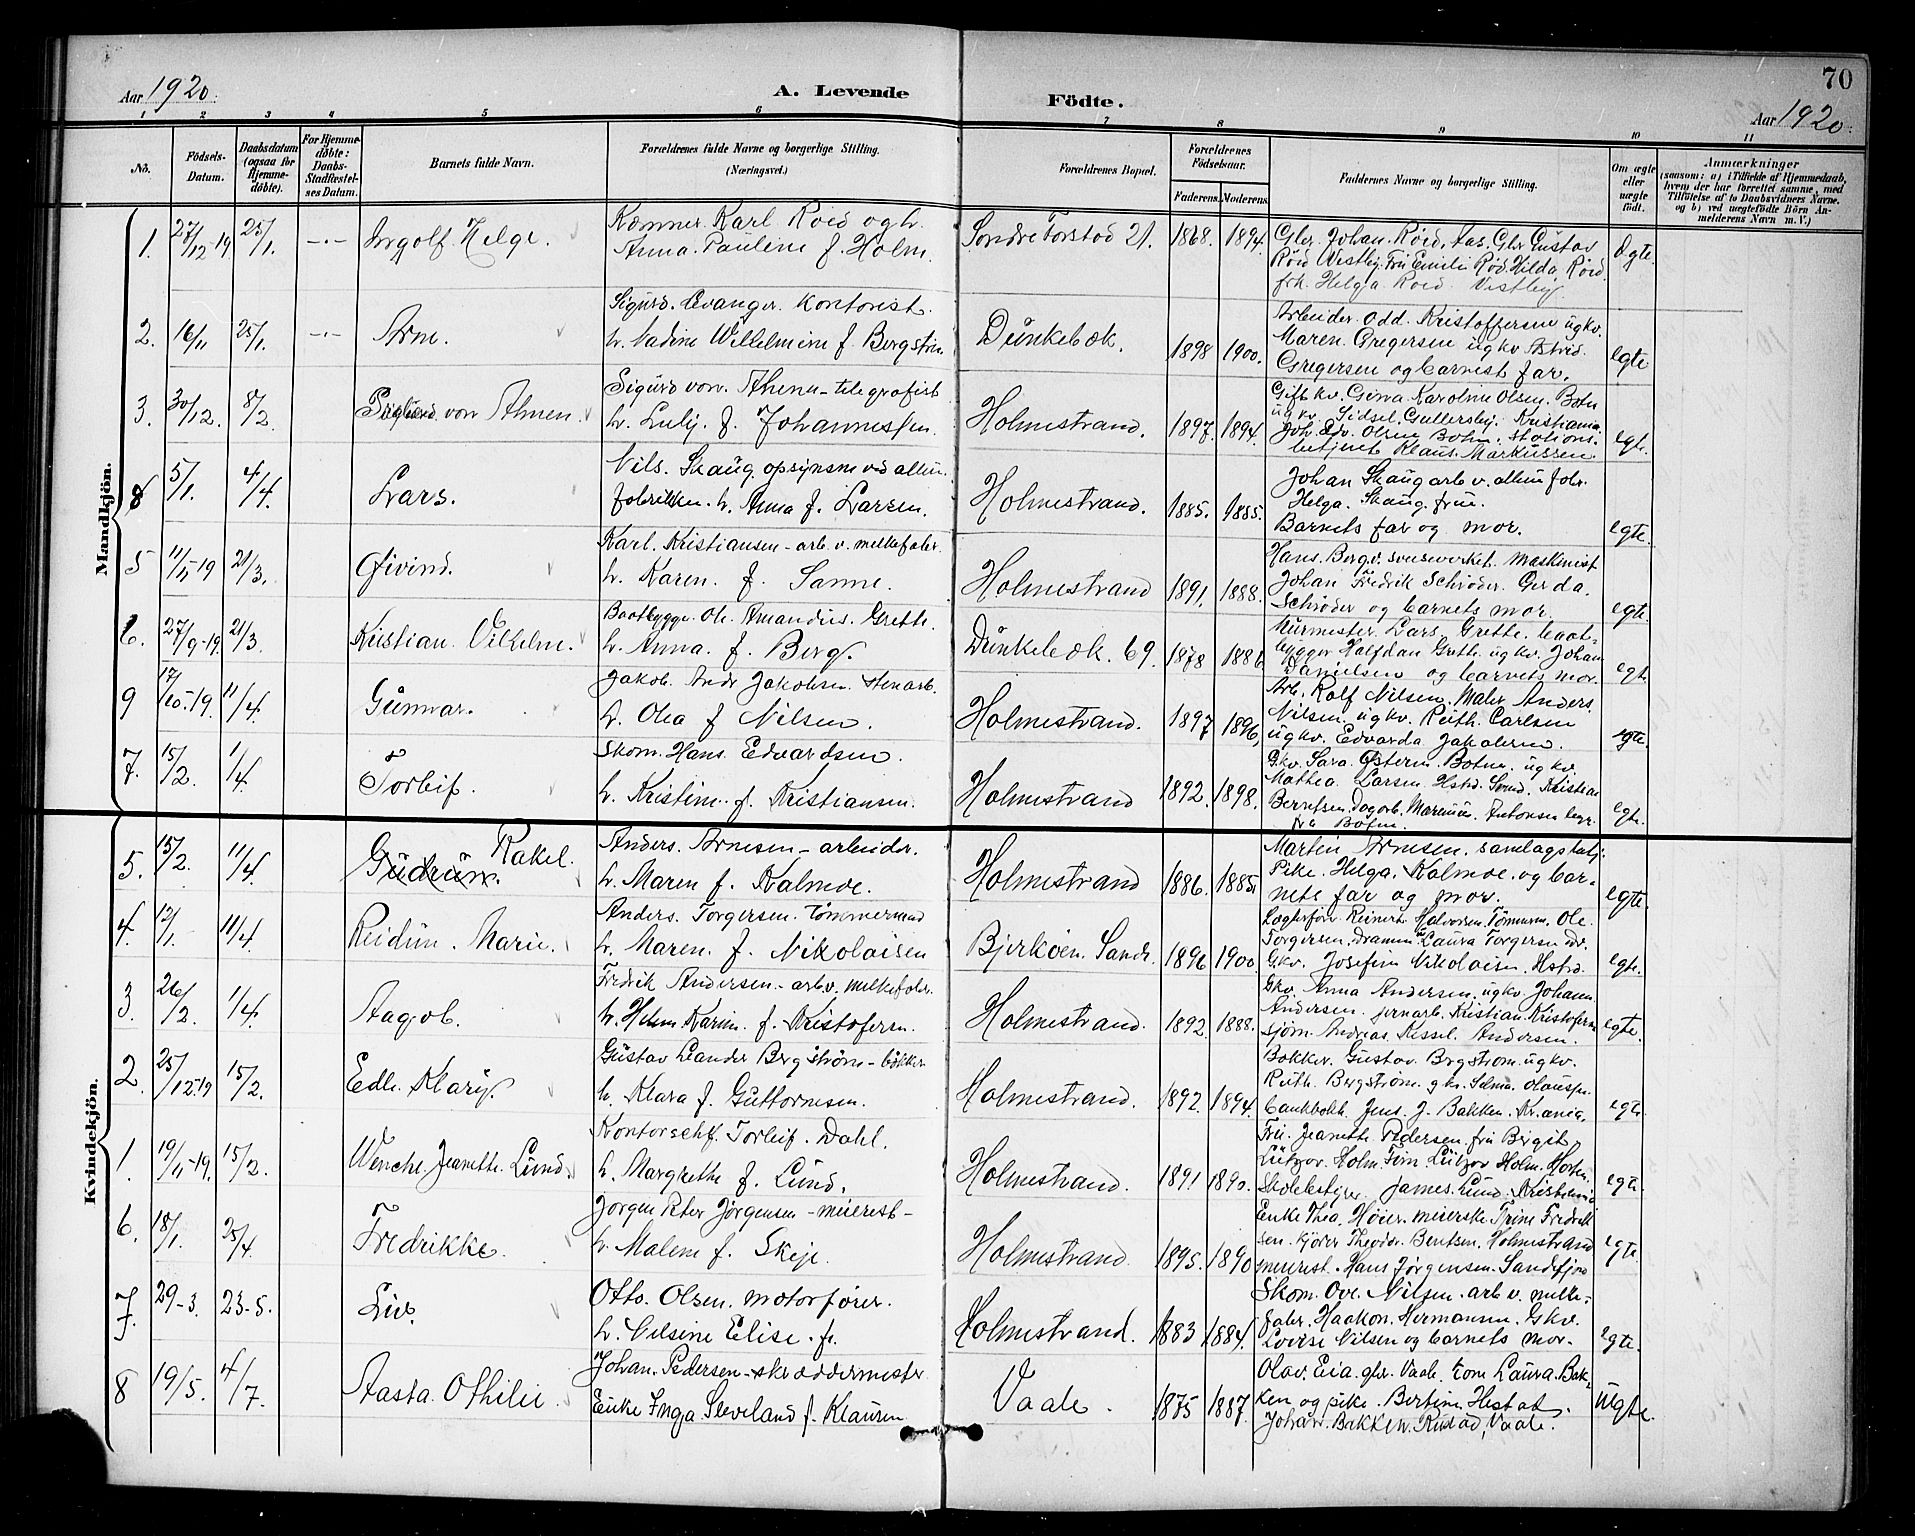 70
Aar 1920.
A. Levende
Födte.
Aar 1920.
1 2 3 4 5 6 7 8 9 10 11
No.
Födsels-Datum.
Daabsdatum (ogsaa for Hjemme-döbte).
For Hjemme-döbte: Daabs-Stadfæstel-ses Datum.
Barnets fulde Navn.
Forældrenes fulde Navne og borgerlige Stilling.
(Næringsvei.)
Forældrenes Bopæl.
Forældrenes Födselsaar.
Faderens. Moderens.
Faddernes Navne og borgerlige Stilling.
Om ægte eller uægte födt.
Anmærkninger
(saasom: a) i Tilfælde af Hjemmedaab, hvem der har forrettet samme, med Tilföielse af to Daabsvidners Navne, og b) ved uægtefödte Börn An-melderens Navn m. V.)
Mandkjön.
1. 27/12-19 25/1. -"- Ingolf Helge.
Kæmner Karl Röed og h.
Anna Pauline f. Holm.
Søndre Torstad 21. 1868. 1894.
Gbr. Johan Röed, Aas. Gbr Gustav
Röed Vestby. Fru Emilie Röd. Hilda Röed
frk. Helga Röed Vestby
Ægte.
2. 16/11 25/1. -"- Arne.
Sigurd Evanger kontorist.
h. Nadine Wilhelmine f. Bergström
Dunkebæk. 1898 1900.
Arbeider Odd. Kristoffersen ugkv.
Maren Gregersen ugkv Astrid
Gregersen og barnest far.
egte
3. 30/12. 8/2. von Ahnen
Sigurd von Ahnen - telegrafist
h. Lully f. Johannessen.
Holmestrand. 1897. 1894.
Gift kv. Gina Karoline Olsen. Botn
ugkv Sidsel Gullersby. Kristiania
Joh. Edv. Olsen Botn. stations-
betjent Klaus Markussen
egte.
8 5/1. 4/4. Lars.
Nils Skaug opsynsm ved allum.
fabrikken. h. Anna f. Larsen.
Holmestrand. 1885. 1885.
Johan Skaug arb v. allum fabr.
Helga Skaug frue.
Barnets far og mor.
egte.
5 11/11-19 21/3. Øivind.
Karl Kristiansen - arb. v. melkefabr.
h. Karen f. Sanne.
Holmestrand 1891. 1888.
Hans Berg v. maskinist
Johan Fredrik Schrøder. Gerda
Schrøder og barnets mor.
egte.
6. 27/9-19. 21/3 Kristian Vilhelm.
Baatbygge. Ole Amandus Grette.
h. Anna f. Berg.
Dunkebæk. 69. 1878 1886
Murmester Lars Grette. baat-
bygger Halfdan Grette ugkv. Johan
Danielsen og barnets mor.
egt.
9 17/10-19. 11/4. Gunnar.
Jakob Andr Jakobsen stenarb.
h. Olea f Nilsen.
Holmestrand. 1897 1896,
Arb. Rolf Nilsen. Maler Anders
Nilsen. ugkv. Ruth Carlsen
ugkv. Edvarda Jakobsen.
egte.
7. 15/2. 1/4. Torleif.
Skom. Hans Edvardsen.
h. Kristine f. Kristiansen.
Holmestrand 1892. 1898.
Gkv. Sara Østern Botne. ugkv
Mathea Larsen Hstd. Smed Kristian
Berntsen. Dagarb. Marenius Antonsen
fra Botn.
egte.
Kvindekjön.
5. 15/2. 11/4. Gudrun. Rakel.
Anders Arnesen - arbeider.
h. Maren f. Kalmoe.
Holmestrand 1886. 1885.
Martin Arnesen. samlagsbetj.
Pike Helga Kalmoe. og bar-
nets far og mor.
egte.
4. 12/1. 11/4. Reidun Marie.
Anders Torgersen. tømmermand
h. Maren f. Nikolaisen
Bjerkøen. Sande. 1896 1900.
Reinert Halvorsen Tømmerm. Ole
Torgersen. Drammen Laura Torgersen
Gkv. Josefine Nikolaisen. Hstrd.
egte.
3. 26/2. 1/4. Aagot.
Fredrik Andersen - arb. v. melkefabr.
h. Helene Karine f. Kristofersen.
Holmestrand. 1892. 1888.
Gkv Anna Andersen. ugkv. Johann
Andersen jernarb. Kristian Kristofersen
sjøm. Andreas Kessel Andersen.
egte.
2. 25/12-19 15/2. Edle Klary.
Gustav Leander Bergstrøm - bökker
h. Klara f. Guttormsen.
Holmestrand. 1892. 1894.
Bøkker Gustav Bergstrøm. ugkv.
Ruth Bergstrøm. gkv. Selma Olaussen
bankbokh. Jens J. Bakken. Kr.ania.
egte.
1. 19/11-19. 15/2. Wenche Jeanette Lund.
Kontorschf. Torleif Dahl.
h. Margrethe f. Lund.
Holmestrand. 1891 1890.
Fru Jeanette Pedersen. fru Bergit
Lützov Holm. Finn Lützov Holm. Horten
Skolebestyrer James Lund. Kristiania
egte.
6. 18/1. 25/4. Fredrikke.
Jørgen Peter Jørgensen - meierist -
h. Malene f. Skeje.
Holmestrand. 1895. 1890
Enke Thea Høier. meierske Trine Fredrik
sen. kjører Theodor Bentsen. Holmestrand
meierist. Hans Jørgensen. Sandefjord
egte.
7. 29-3. 23-5. Liv.
Otto Olsen. motorfører.
h. Nilsine Elise f.
Holmestrand. 1883 1884.
Skom. Ove Nilsen. arb v. melke-
fabr. Haakon Hermansen. Gkv.
Lovise Nilsen og barnets mor.
egte.
8 19/5. 4/7. Aasta Othilie
Johan Pedersen - skræddermester
Enke Inga Sleveland f. Klausen
Vaale. 1875 1887.
Olav Eia. gbr. Vaale. kone Laura Bak-
ken og pike Bertine Hestad.
Johan Bakken. Rustad, Vaale.
Uegte.